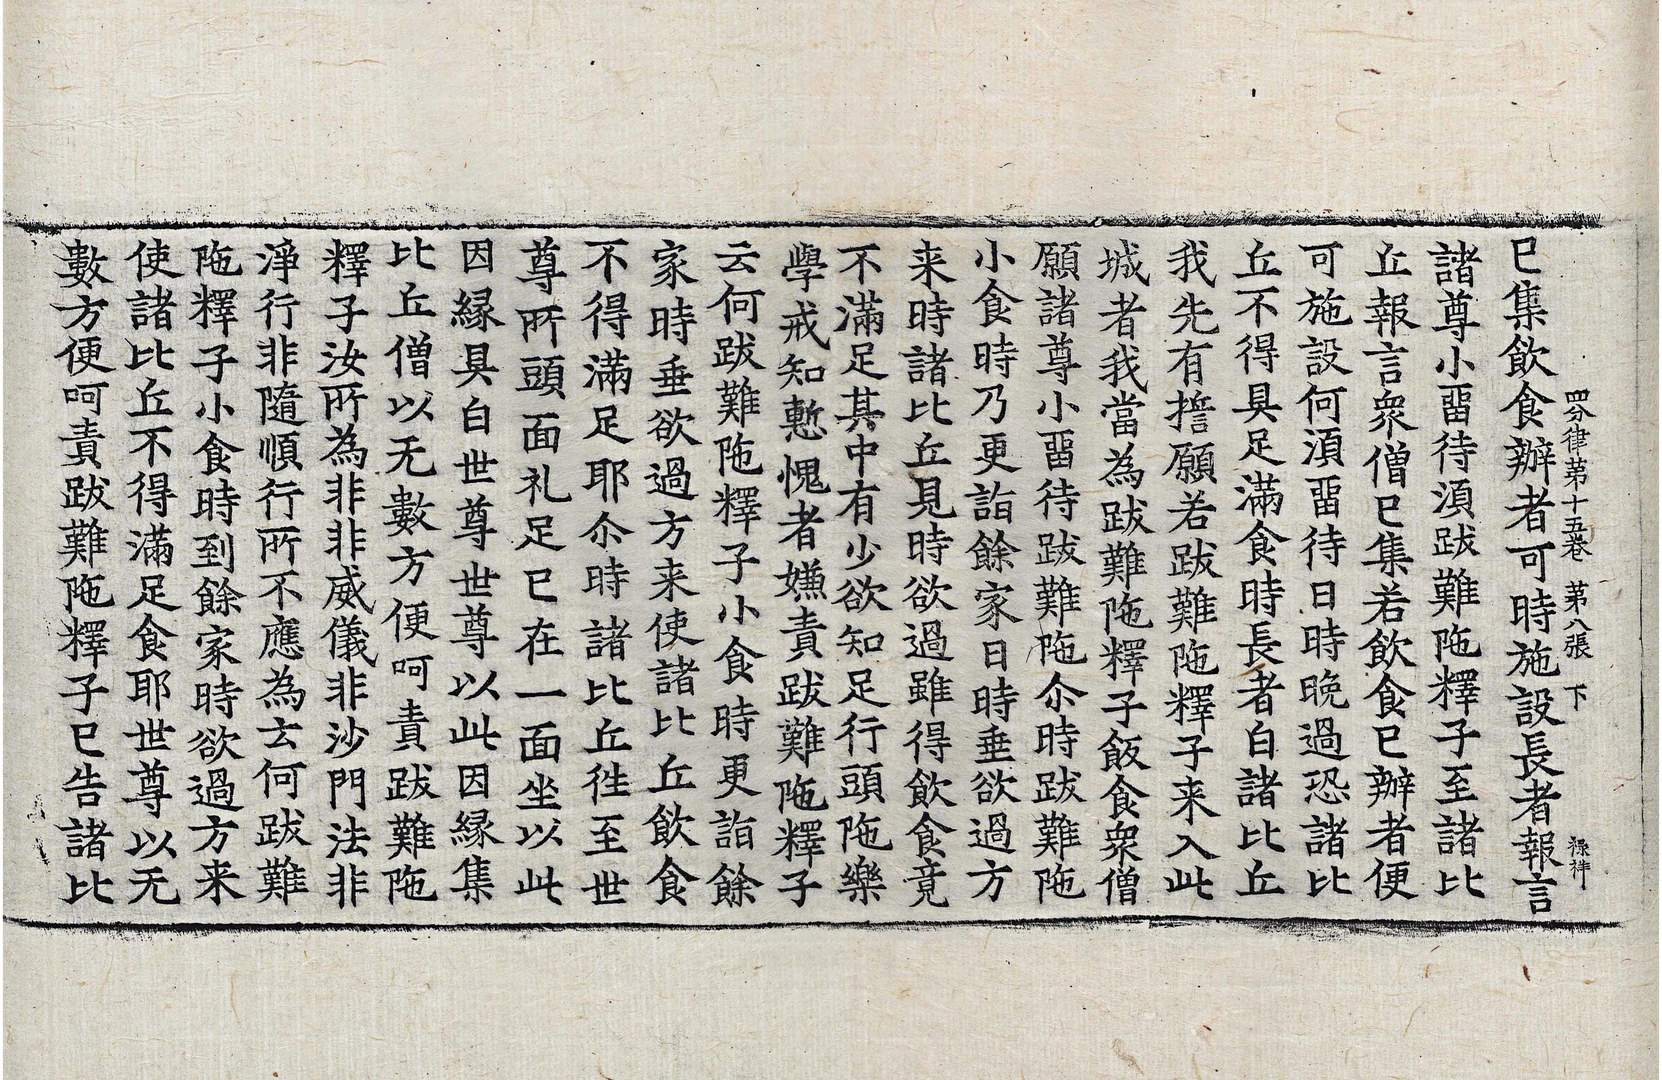 四分律第十五卷 第八張 下 祿祥
已集飲食辦者可時施設長者報言
諸尊小畱待湏跋難陁釋子至諸比
丘報言衆僧已集若飲食已辦者便
可施設何湏畱待日時晚過恐諸比
丘不得具足滿食時長者白諸比丘
我先有誓願若跋難陁釋子来入此
城者我當為跋難陁釋子飯食衆僧
願諸尊小畱待跋難陁尒時跋難陁
小食時乃更詣餘家日時垂欲過方
来時諸比丘見時欲過雖得飲食竟
不滿足其中有少欲知足行頭陁樂
學戒知慙愧者嫌責跋難陁釋子
云何跋難陁釋子小食時更詣餘
家時垂欲過方来使諸比丘飲食
不得滿足耶尒時諸比丘徃至世
尊所頭面礼足已在一面坐以此
因縁具白世尊世尊以此因縁集
比丘僧以无數方便呵責跋難陁
釋子汝所為非非威儀非沙門法非
淨行非隨順行所不應為云何跋難
陁釋子小食時到餘家時欲過方来
使諸比丘不得滿足食耶世尊以无
數方便呵責跋難陁釋子已告諸比